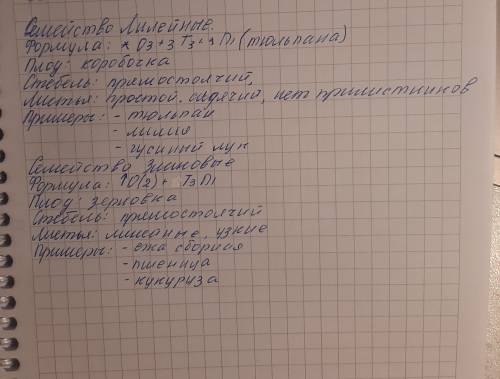 Семейство Лилейные.
Формула: * О3+3 Т3+3 П1 (тюльпана)
Плод: коробочка
Стебель: прямостоячий,
Листья: простой, сидячий, нет прилистников
Примеры: - тюльпан
- лилия
- гусиный лук
Семейство Злаковые
Формула: ↑О(2)+ Т3 П1
Плод: зерновка
Стебель: прямостоячий
Листья: линейные, узкие
Примеры: - ежа сборная
- пшеница
- кукуруза